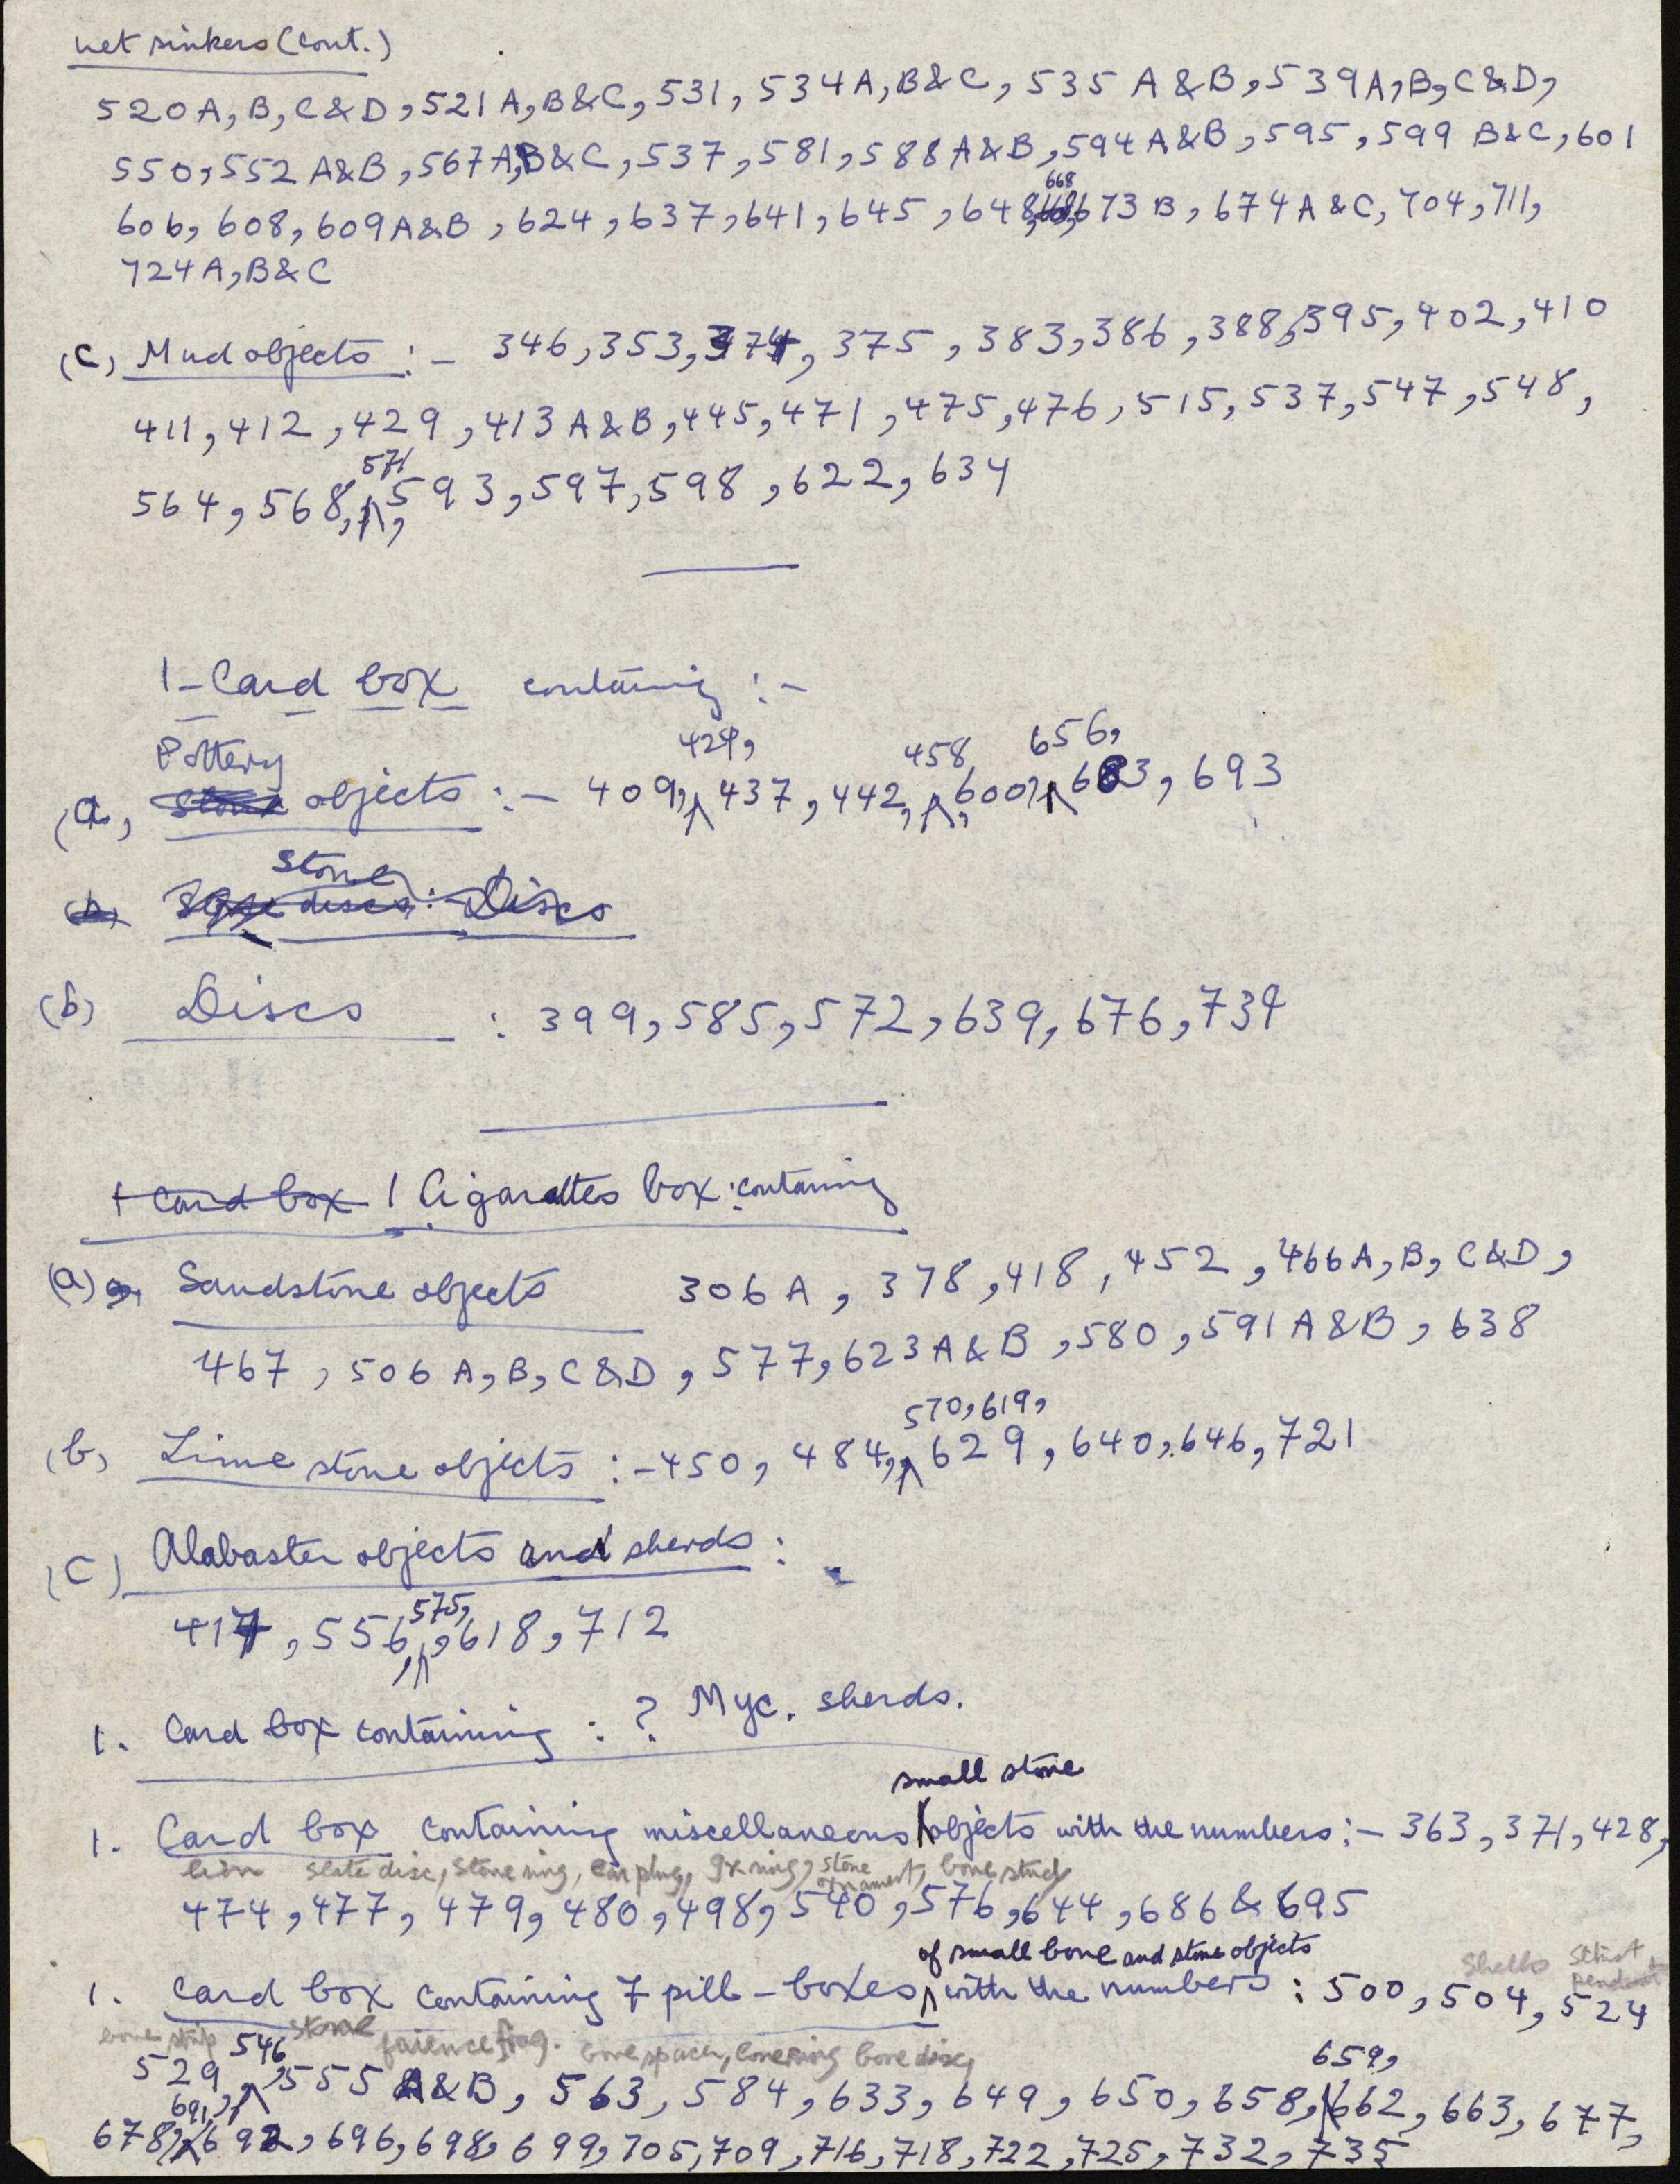 net sinkers (cont.)
520A, B, C&D, 521A, B&C, 531, 534A, B&C, 535 A&B, 539A, B, C&D,
550, 552 A&B, 567A, B&C, 537, 581, 588A&B, 594A&B, 595, 599 B&C, 601
668
606, 608, 609A&B, 624, 637, 641, 645, 648, 673 B, 674A&C, 704, 711,
724A, B&C
(C) Mud objects :- 346, 353, 374, 375, 383, 386, 388, 395, 402, 410
411, 412, 429, 413 A&B, 445, 471, 475, 476, 515, 537, 547, 548,
571
564, 568, 593, 597, 598, 622, 634
1-Card box containing :-
Pottery 424, 458 656,
(a, Stone objects :- 409, 437, 442, 600, 683, 693
Stone
(b) discs : Discs
(b) Discs : 399, 585, 572, 639, 676, 734
1 Card box 1 Cigarattes box : containing
(a) Sandstone objects 306A, 378, 418, 452, 466A, B, C&D,
467, 506 A, B, C&D, 577, 623A&B, 580, 591A&B, 638
570, 619,
(b, Lime stone objects :- 450, 484, 629, 640, 646, 721
(C) Alabaster objects and sherds :
575,
417, 556, 618, 712
1. Card box containing : ? Myc. sherds.
small stone
1. Card box containing miscellaneous objects with the numbers :- 363, 371, 428,
lion slate disc, stone ring, ear plug, ring, stone ornament, bone stud
474, 477, 479, 480, 498, 540, 576, 644, 686 & 695
of small bone and stone objects shells schist pendant
1. Card box containing 7 pill-boxes with the numbers : 500, 504, 524
bone strip stone faience frag. bone spacer, bone ring bone disc,
546 659,
529, 555 A&B, 563, 584, 633, 649, 650, 658, 662, 663, 677,
691,
678, 692, 696, 698, 699, 705, 709, 716, 718, 722, 725, 732, 735